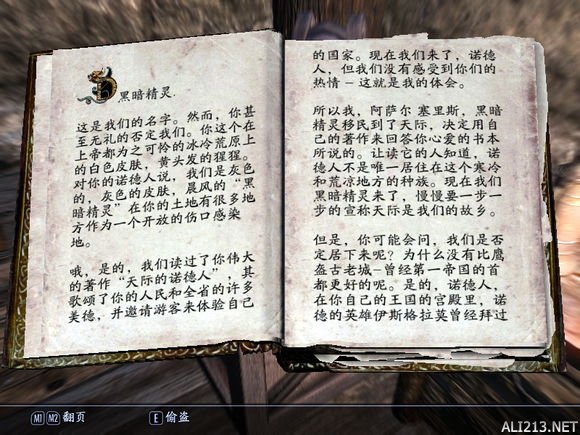 黑暗精灵.
这是我们的名字。然而，你甚
至无礼的否定我们。你这个在
上帝都为之可怜的冰冷荒原上
的白色皮肤，黄头发的猩猩。
对你的诺德人说，我们是灰色
的，灰色的皮肤，晨风的“黑
暗精灵”在你的土地有很多地
方作为一个开放的伤口感染
地。
哦，是的，我们读过了你伟大
的著作“天际的诺德人”，其
歌颂了你的人民和全省的许多
美德，并邀请游客来体验自己
的国家。现在我们来了，诺德
人，但我们没有感受到你们的
热情－这就是我的体会。
所以我，阿萨尔 塞里斯，黑暗
精灵移民到了天际，决定用自
己的著作来回答你心爱的书本
所说的。让读它的人知道，诺
德人不是唯一居住在这个寒冷
和荒凉地方的种族。现在我们
黑暗精灵来了，慢慢要一步一
步的宣称天际是我们的故乡。
但是，你可能会问，我们是否
定居下来呢？为什么没有比鹰
盔古老城-曾经第一帝国的首
都更好的呢。是的，诺德人，
在你自己的王国的宫殿里，诺
德的英雄伊斯格拉莫曾经拜过
M1 M2 翻页
E 偷盗
ALI213.NET